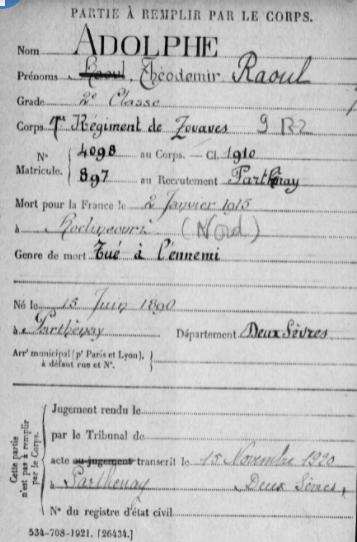 PARTIE À REMPLIR PAR LE CORPS.
Nom ADOLPHE
Prénoms Raoul, Théodemir Raoul
Grade 2e Classe
Corps 7e Régiment de Zouaves
N° Matricule. 4098 au Corps. — Cl. 1910
897 au Recrutement Parthenay
Mort pour la France le 2 Janvier 1915
à Roclincourt (Nord)
Genre de mort Tué à l'ennemi
Né le 15 Juin 1890
à Parthenay Département Deux Sèvres
Arrt municipal (pr Paris et Lyon), à défaut rue et N°.
Cette partie n'est pas à remplir par le Corps.
Jugement rendu le
par le Tribunal de
acte ou jugement transcrit le 15 Novembre 1920
à Parthenay Deux Sèvres,
N° du registre d'état civil
534-708-1921. [26434.]